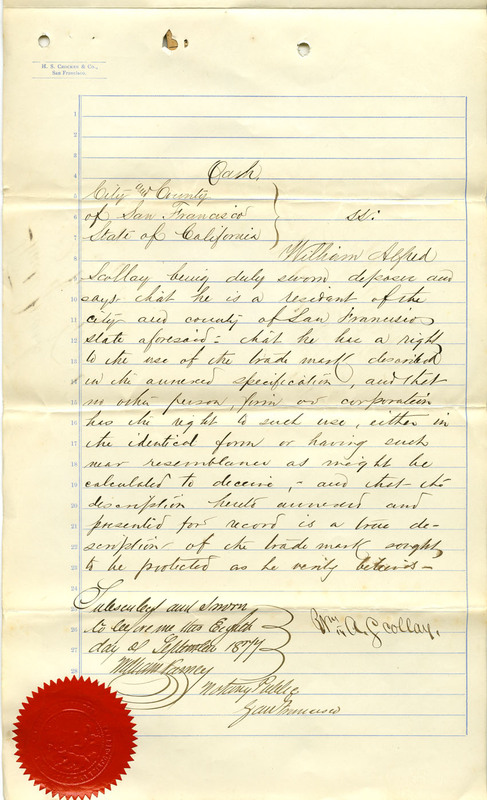 H. S. Crocker & Co.,
San Francisco.
Oath.
City and County
of San Francisco
State of California
ss:
William Alfred
Scollay being duly sworn deposes and
says that he is a resident of the
city and county of San Francisco
state aforesaid - that he has a right
to the use of the trade mark described
in the annexed specification, and that
no other person, firm or corporation
has the right to such use, either in
the identical form or having such
near resemblance as might be
calculated to deceive, - and that the
description hereto annexed and
presented for record is a true de-
scription of the trade mark sought
to be protected as he verily believes -
Subscribed and sworn
to before me this Eighth
day of September 1877
Wm. A. Scollay.
William
Notary Public
San Francisco
1
2
3
4
5
6
7
8
9
10
11
12
13
14
15
16
17
18
19
20
21
22
23
24
25
26
27
28
29